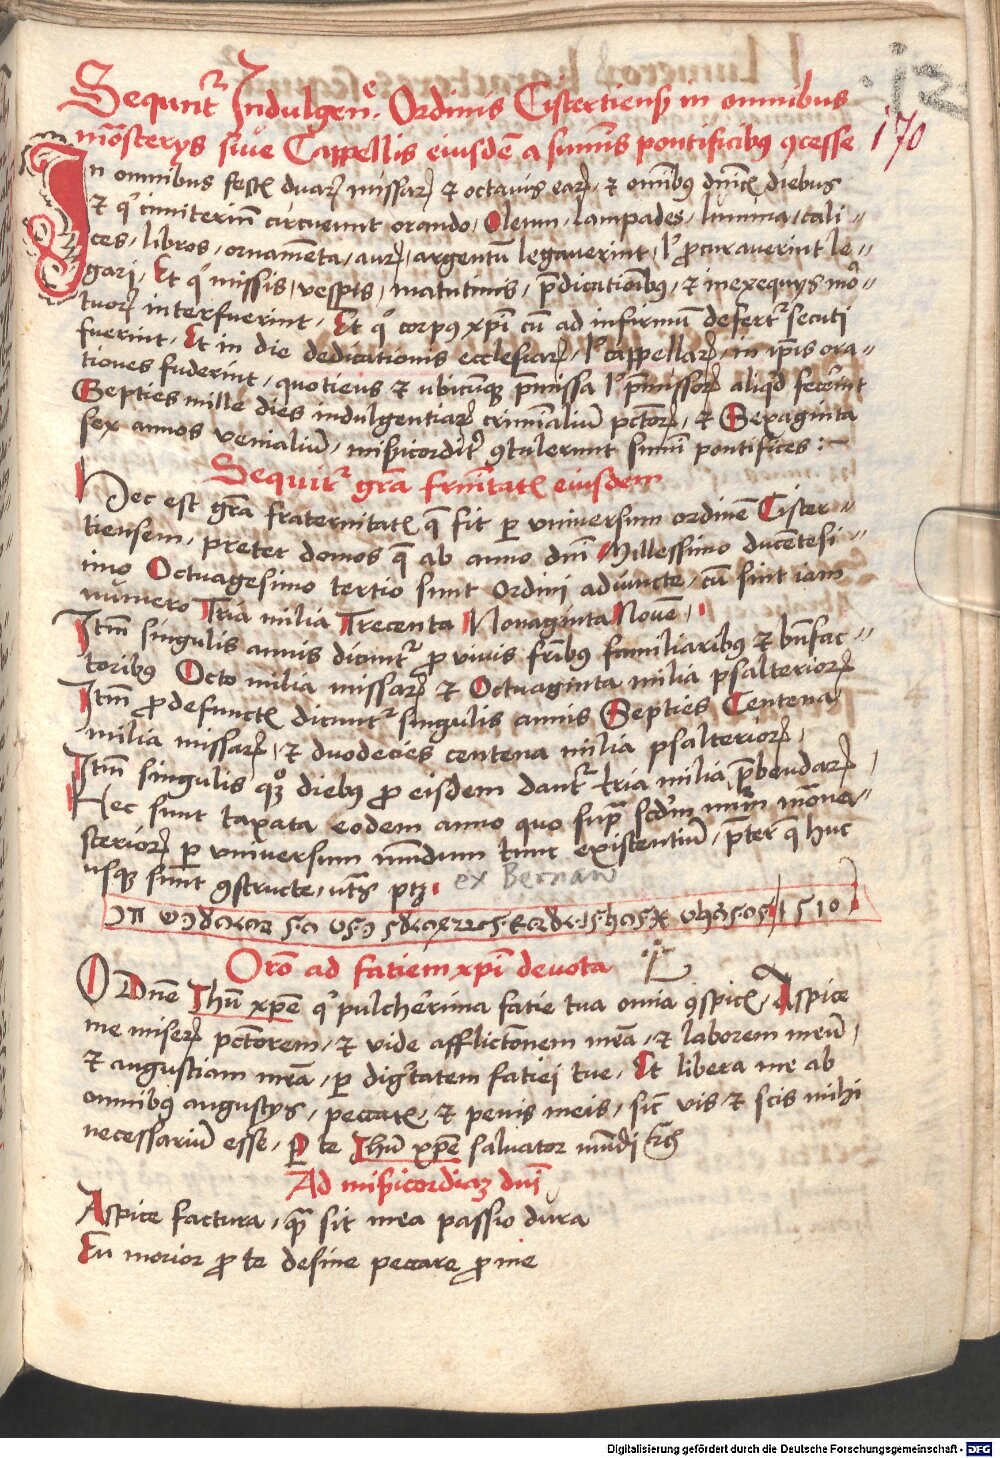 Sequnt᷑ Indulgen. Ordinis Cisterciensꝭ in omnibus
mōsterys siue Cappellis eiusdē a sumis pontificibꝰ ꝯcesse
170
In omnibus festꝭ duaꝝ missaꝝ et octauis eaꝝ, et omībꝰ dnicꝭ diebus
et qͥ cimiteriū circueunt orando, Oleum, lampades, lumina, cali⸗
ces, libros, ornamēta, auꝝ, argentū legauerint, lͥ ꝓcurauerint le⸗
gari, Et qͥ missis, vesprꝭs, matutinis, p̄dicatiōibꝰ, et in exequys mor⸗
tuoꝝ interfuerint, Et qͥ corpꝰ xp̄i cū ad infirmū defert᷑ secuti
fuerint, Et in die dedicationis ecclesiaꝝ, lͥ cappellaꝝ, in ip̄is ora⸗
tiones fuderint, quotiens et vbicūqꝫ p̄missa lͥ p̄missoꝝ aliqd fecerint
Septies mille dies indulgentiaꝝ criminaliū pctōꝝ, et Sexaginta
sex annos venialiū, misericordit᷑ ꝯtulerunt sumi pontifices :~
Sequit᷑ gr̄a frnitatꝭ eiusdem
Hec est gr̄a fraternitatꝭ q̄ fit ꝑ vniuersum ordinē Cister⸗
tiensem, preter domos q̄ ab anno dni Millessimo ducētesi⸗
mo Octuagesimo tertio sunt Ordini adiuncte, cū sint iam
numero Tria milia Trecenta Nonaginta Nouē.
Itm̄ singulis annis dicunt᷑ ꝓ viuis fribꝰ familiaribꝰ et bn̄fac⸗
toribꝰ Octo milia missaꝝ et Octuaginta milia psalterioꝝ
Itm̄ ꝓ defunctꝭ dicunt᷑ singulis annis Septies Centena
milia missaꝝ, et duodecies centena milia psalterioꝝ,
Itm̄ singulis qͦꝫ diebus ꝓ eisdem dant᷑ tria milia p̄bendaꝝ,
Hec sunt taxata eodem anno quo sup̄ scdm̄ num̄ mōna⸗
sterioꝝ ꝑ vniuersum mundum tunc existentiū, p̄ter q̄ huc
usqꝫ sunt ꝯstructe,
ex Bernaw
1510
Orō ad fatiem xp̄i deuota
O Dn̄e Ihū xp̄e qͥ pulcherrima fatie tua omnia ꝯspicꝭ, Aspice
me miseꝝ pctōrem, et vide afflictōnem mēa, et laborem meū,
et angustiam mēa, ꝑ dignitatem fatiei tue, Et libera me ab
omnibꝰ angustys, peccatꝭ, et penis meis, sic vis et scis mihi
necessariū esse, ꝑ te Ihū xp̄e saluator mūdi
Ad misericordiaꝫ dni
Aspice factura, qͣ sit mea passio dura
En morior ꝓ te desine peccare ꝓ me
Digitalisierung gefördert durch die Deutsche Forschungsgemeinschaft - DFG